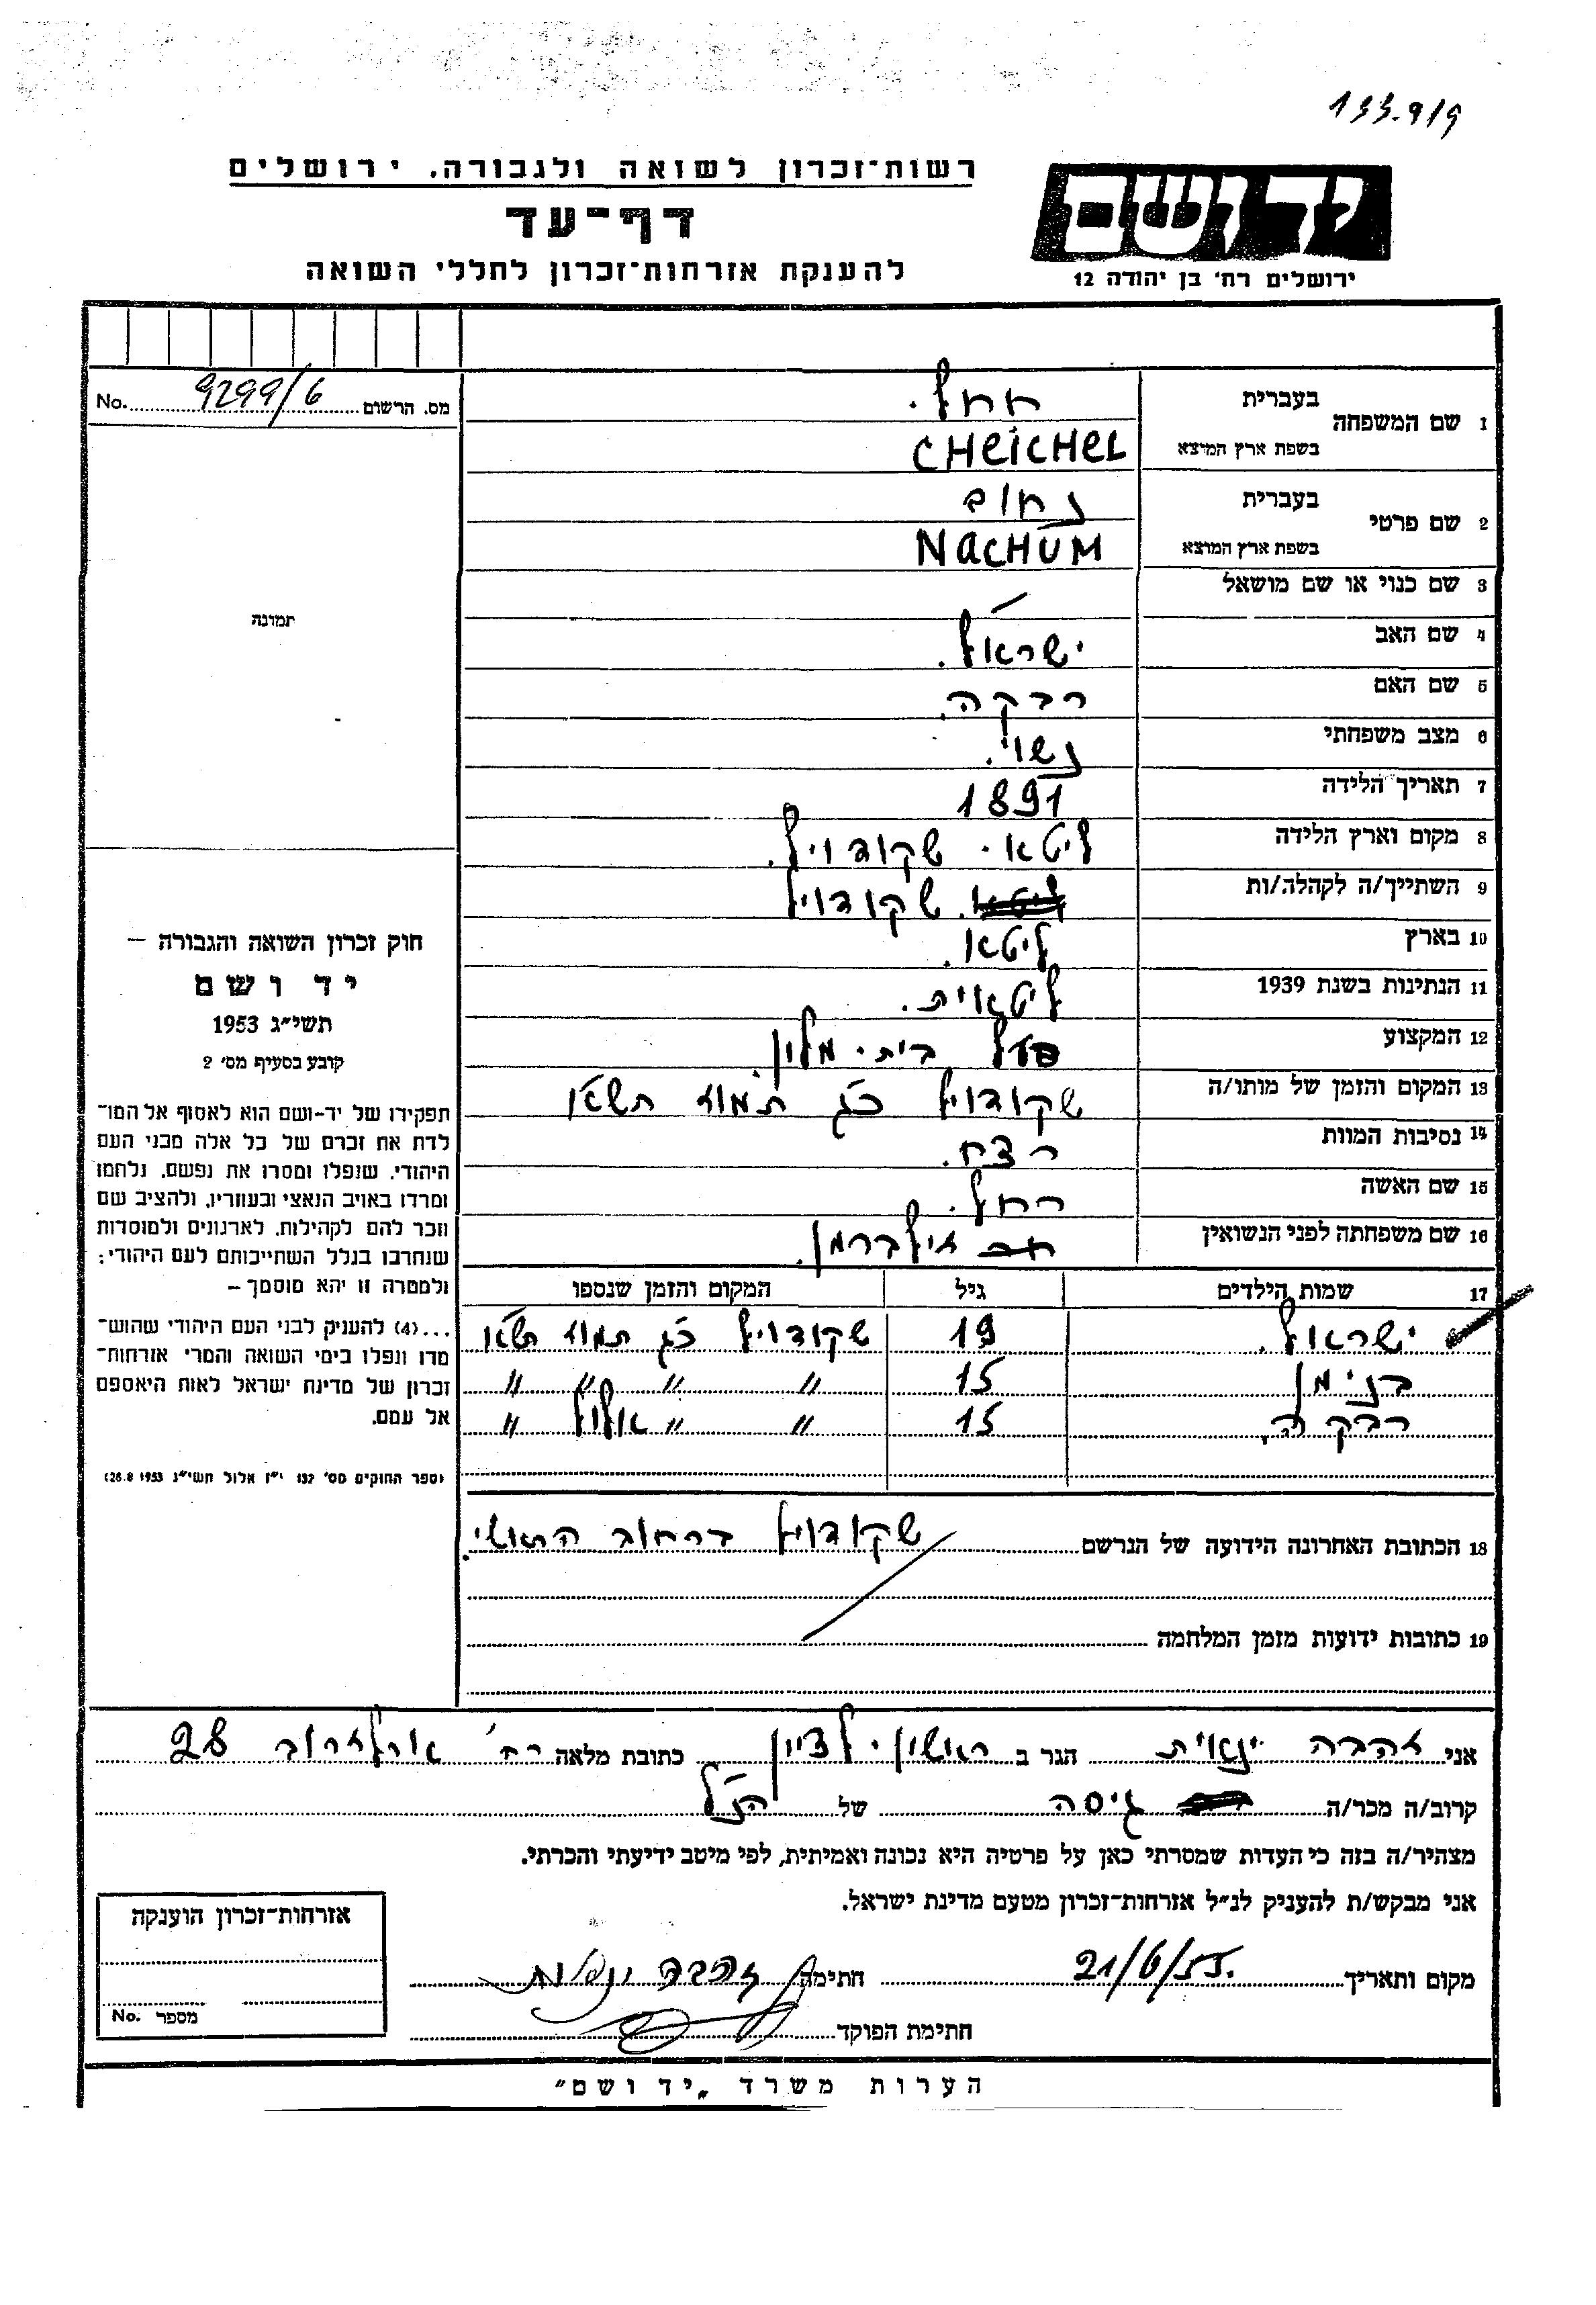 133.9/9
רשות־זכרון לשואה ולגבורה. ירושלים
דף־עד
להענקת אזרחות־זכרון לחללי השואה
ידושם
ירושלים רח' בן יהודה 12
מס. הרשום 9299/6 No.
1 שם המשפחה בעברית חחל.
בשפת ארץ המוצא CHEICHEL
2 שם פרטי בעברית נחום
בשפת ארץ המוצא NACHUM
3 שם כנוי או שם מושאל —
4 שם האב ישראל.
5 שם האם רבקה.
6 מצב משפחתי נשוי.
7 תאריך הלידה 1891
8 מקום וארץ הלידה ליטא. שקודויל.
9 השתייך/ה לקהלה/ות שקודויל
10 בארץ ליטא.
11 הנתינות בשנת 1939 ליטאית.
12 המקצוע בעל בית. מלון.
13 המקום והזמן של מותו/ה שקודויל כ"ג תמוז תש"א
14 נסיבות המוות רצח.
15 שם האשה רחל.
16 שם משפחתה לפני הנשואין זילברמן.
17 שמות הילדים גיל המקום והזמן שנספו
ישראל. 19 שקודויל כ"ג תמוז תש"א
בנימן 15 " " " "
רבקה. 15 " " אלול "
18 הכתובת האחרונה הידועה של הנרשם שקודויל ברחוב הראשי.
19 כתובות ידועות מזמן המלחמה
תמונה
חוק זכרון השואה והגבורה —
יד ושם
תשי"ג 1953
קובע בסעיף מס' 2
תפקידו של יד-ושם הוא לאסוף אל המו־
לדת את זכרם של כל אלה מבני העם
היהודי, שנפלו ומסרו את נפשם, נלחמו
ומרדו באויב הנאצי ובעוזריו, ולהציב שם
וזכר להם לקהילות, לארגונים ולמוסדות
שנחרבו בגלל השתייכותם לעם היהודי;
ולמטרה זו יהא מוסמך —
...(4) להעניק לבני העם היהודי שהוש־
מדו ונפלו בימי השואה והמרי אזרחות־
זכרון של מדינת ישראל לאות היאספם
אל עמם.
(ספר החוקים מס' 132 י"ז אלול תשי"ג 28.8.1953)
אני זהבה ינאית הגר ב ראשון-לציון כתובת מלאה רח' ארלוזרוב 28
קרוב/ה מכר/ה גיסה של הנ"ל
מצהיר/ה בזה כי העדות שמסרתי כאן על פרטיה היא נכונה ואמיתית, לפי מיטב ידיעתי והכרתי.
אני מבקש/ת להעניק לנ"ל אזרחות־זכרון מטעם מדינת ישראל.
מקום ותאריך 21/6/55. חתימה זהבה ינאית
חתימת הפוקד
אזרחות־זכרון הוענקה
מספר No.
הערות משרד „יד ושם"